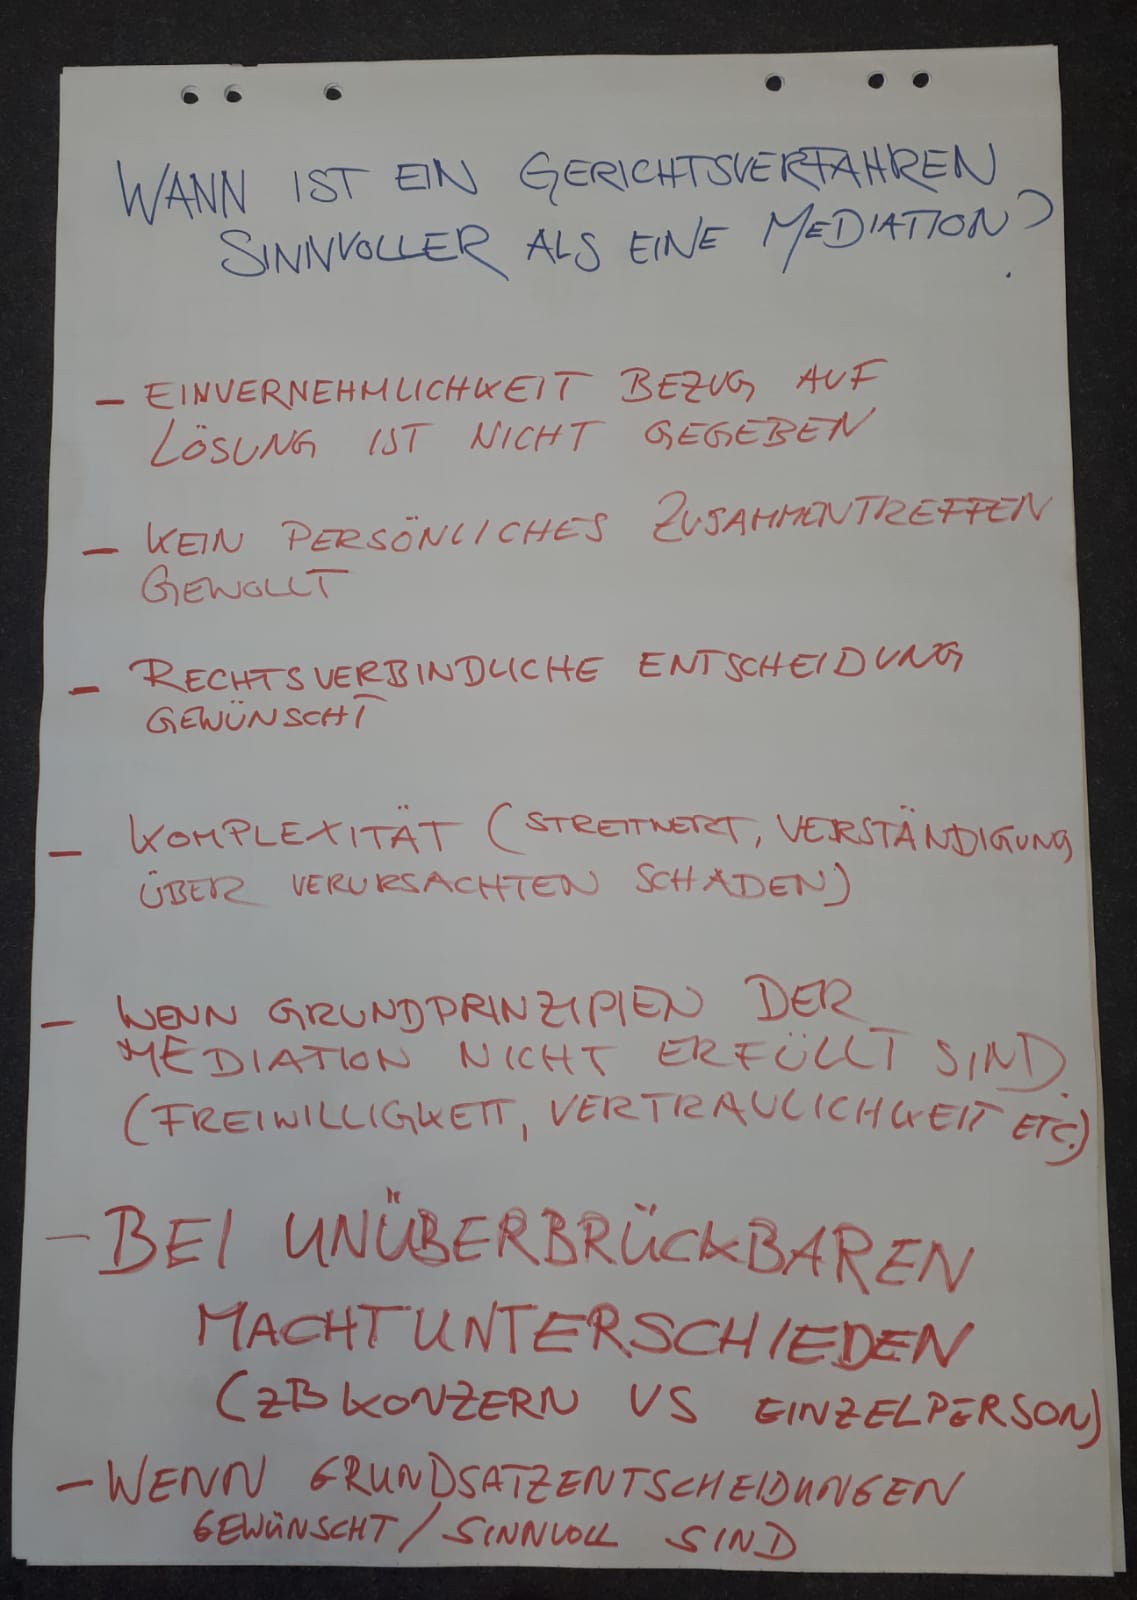 WANN IST EIN GERICHTSVERFAHREN
SINNVOLLER ALS EINE MEDIATION?
- EINVERNEHMLICHKEIT BEZUG AUF
LÖSUNG IST NICHT GEGEBEN
- KEIN PERSÖNLICHES ZUSAMMENTREFFEN
GEWOLLT
- RECHTSVERBINDLICHE ENTSCHEIDUNG
GEWÜNSCHT
- KOMPLEXITÄT (STREITWERT, VERSTÄNDIGUNG
ÜBER VERURSACHTEN SCHADEN)
- WENN GRUNDPRINZIPIEN DER
MEDIATION NICHT ERFÜLLT SIND.
(FREIWILLIGKEIT, VERTRAULICHKEIT ETC.)
- BEI UNÜBERBRÜCKBAREN
MACHTUNTERSCHIEDEN
(ZB KONZERN VS EINZELPERSON)
- WENN GRUNDSATZENTSCHEIDUNGEN
GEWÜNSCHT / SINNVOLL SIND